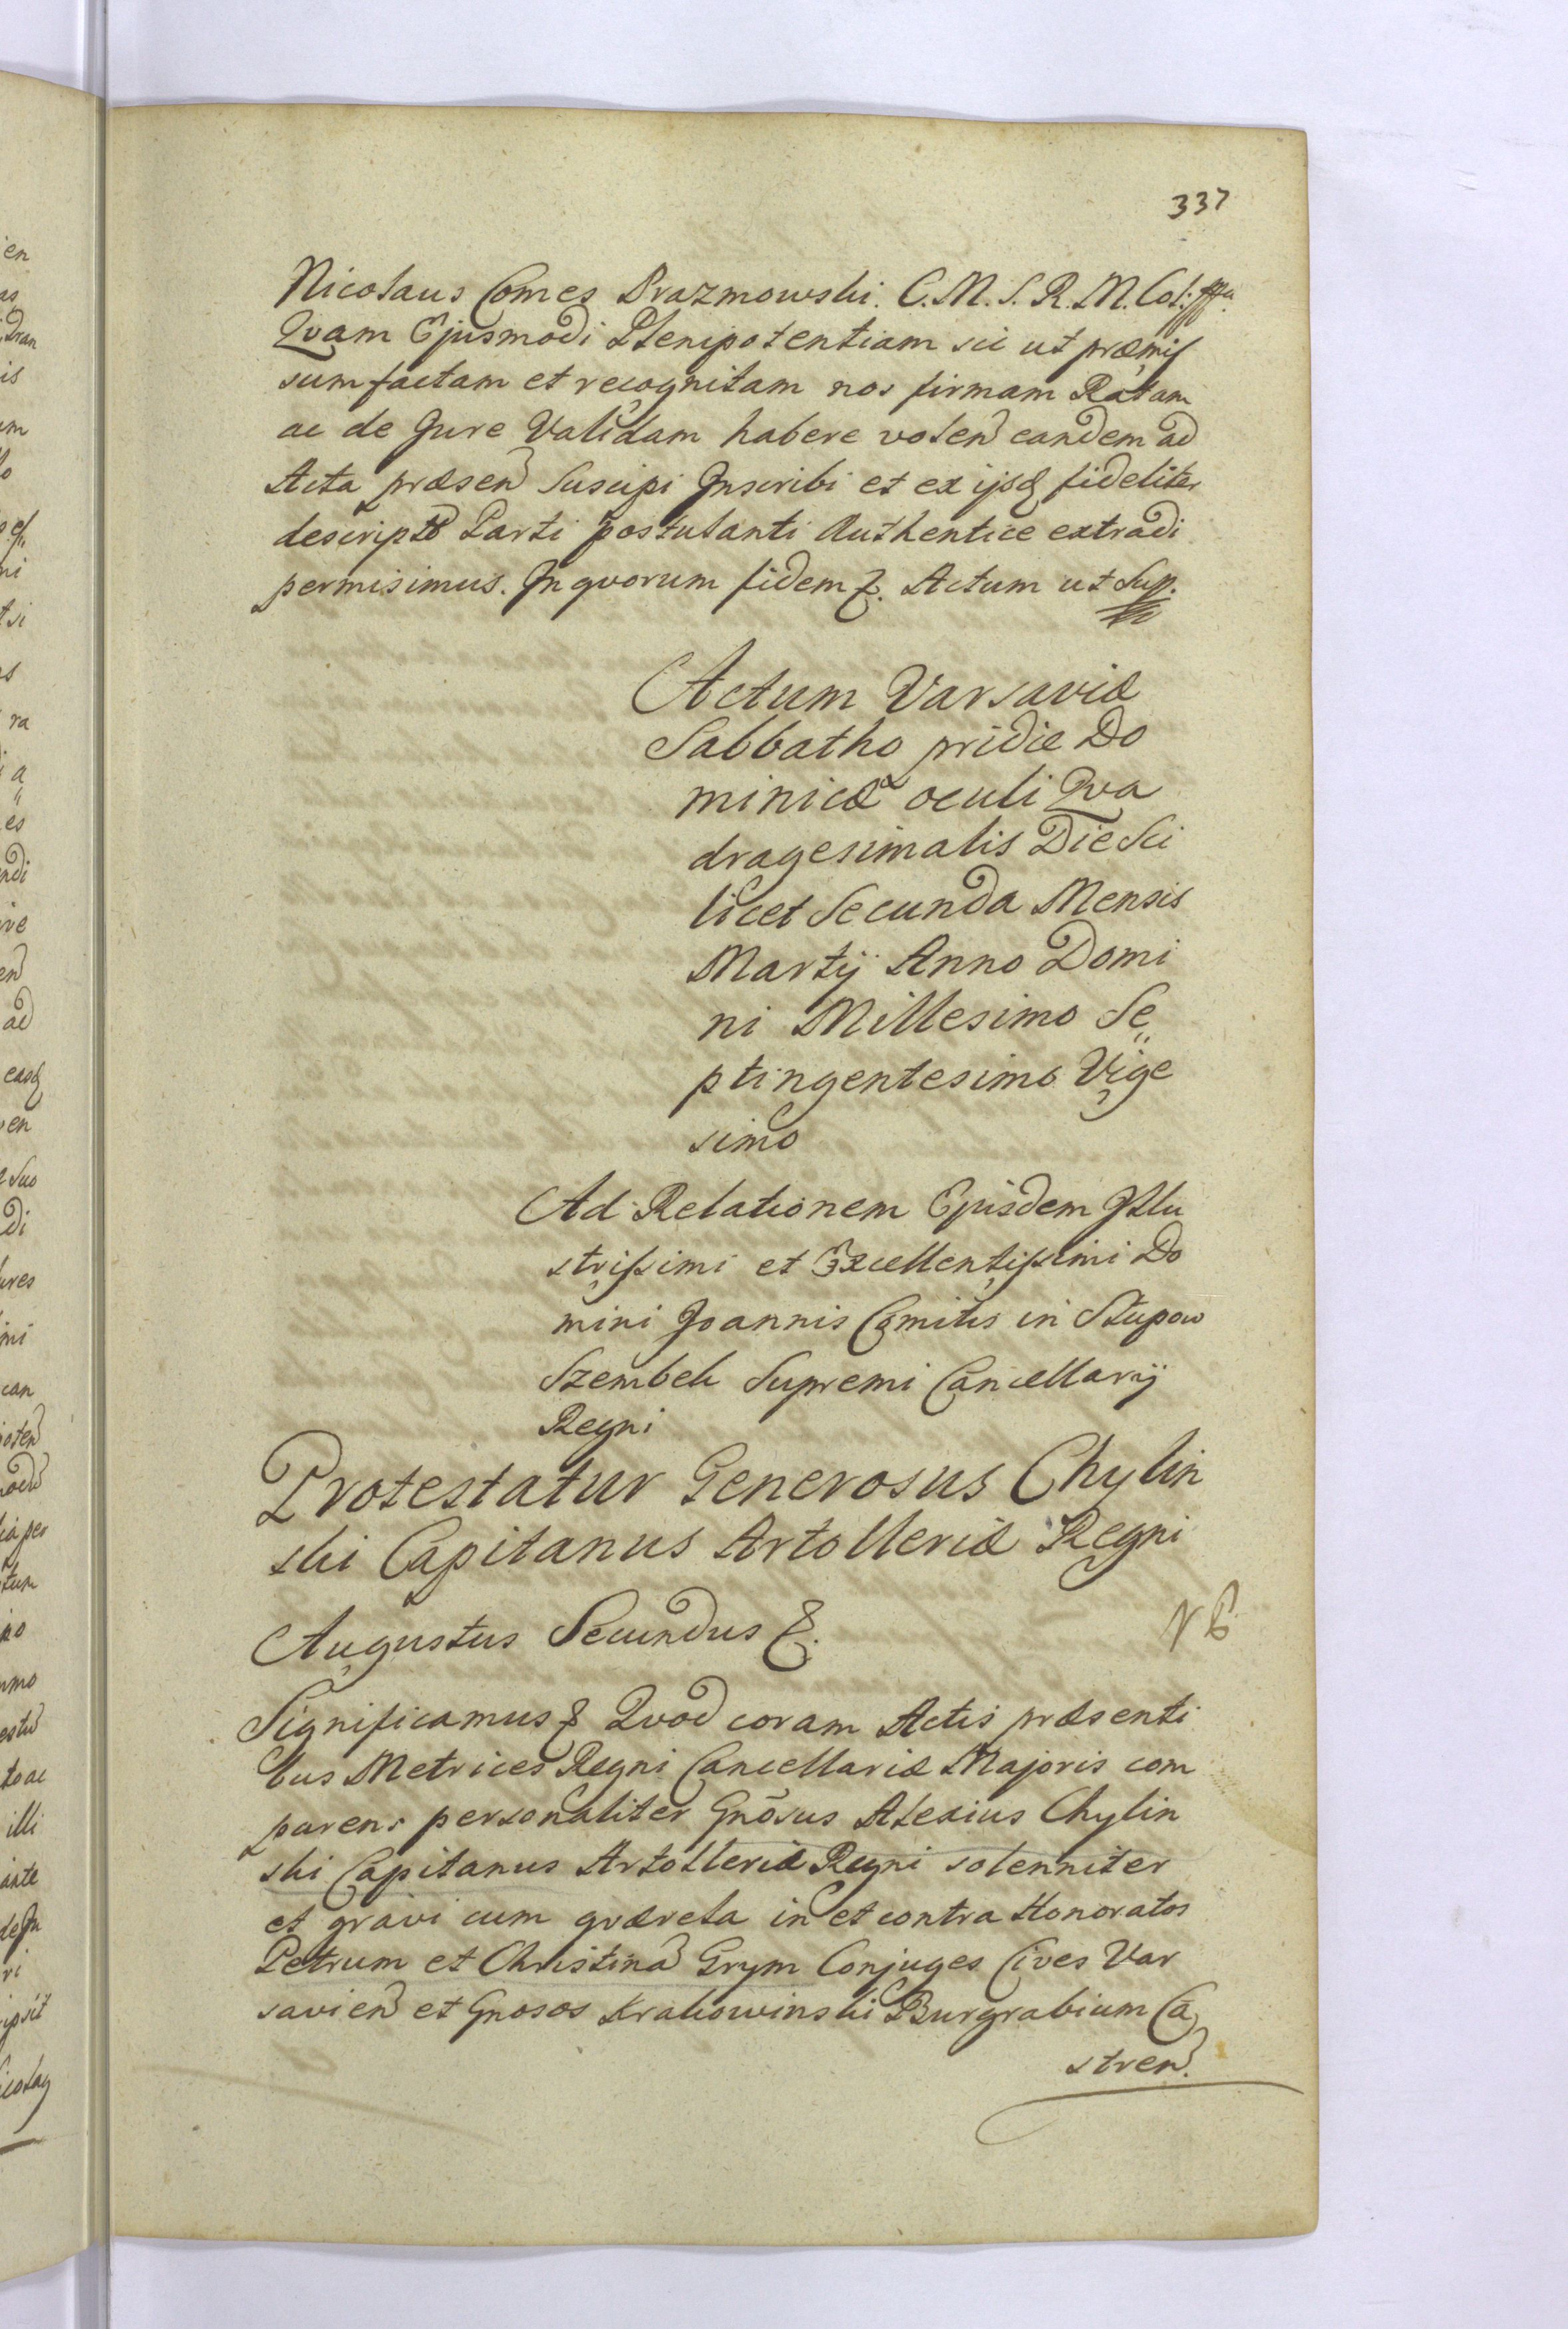 337
Nicolaus Comes Prazmowski. C. M. S. R. M. Col:
Qvam Ejusmodi Plenipotentiam sic ut præmis
sum factam et recognitam nos firmam Ratam
ac de Jure Validam habere volen eandem ad
Acta præsen Suscipi Inscribi et ex ijsq fideliter
descripto Parti postulanti Authentice extradi
permisimus. In qvorum fidem &. Actum ut Sup.
Actum Varsaviæ
Sabbatho pridie Do
minicæ oculi Qva
dragesimalis Die Sci
licet Secunda Mensis
Martij Anno Domi
ni Millesimo Se
ptingentesimo Vige
simo
Ad Relationem Ejusdem Illu
strissimi et Excellentissimi Do
mini Joannis Comitis in Słupow
Szembek Supremi Cancellarij
Regni
Protestatur Generosus Chylin
ski Capitanus Artolleriæ Regni
Augustus Secundus &.
NB
Significamus & Qvod coram Actis præsenti
bus Metrices Regni Cancellariæ Majoris com
parens personaliter Gnõsus Alexius Chylin
ski Capitanus Artolleriæ Regni solenniter
et gravi cum qværela in et contra Honoratos
Petrum et Christina Grym Conjuges Cives Var
savien et Gnosos Krakowinski Burgrabium Ca
stren.